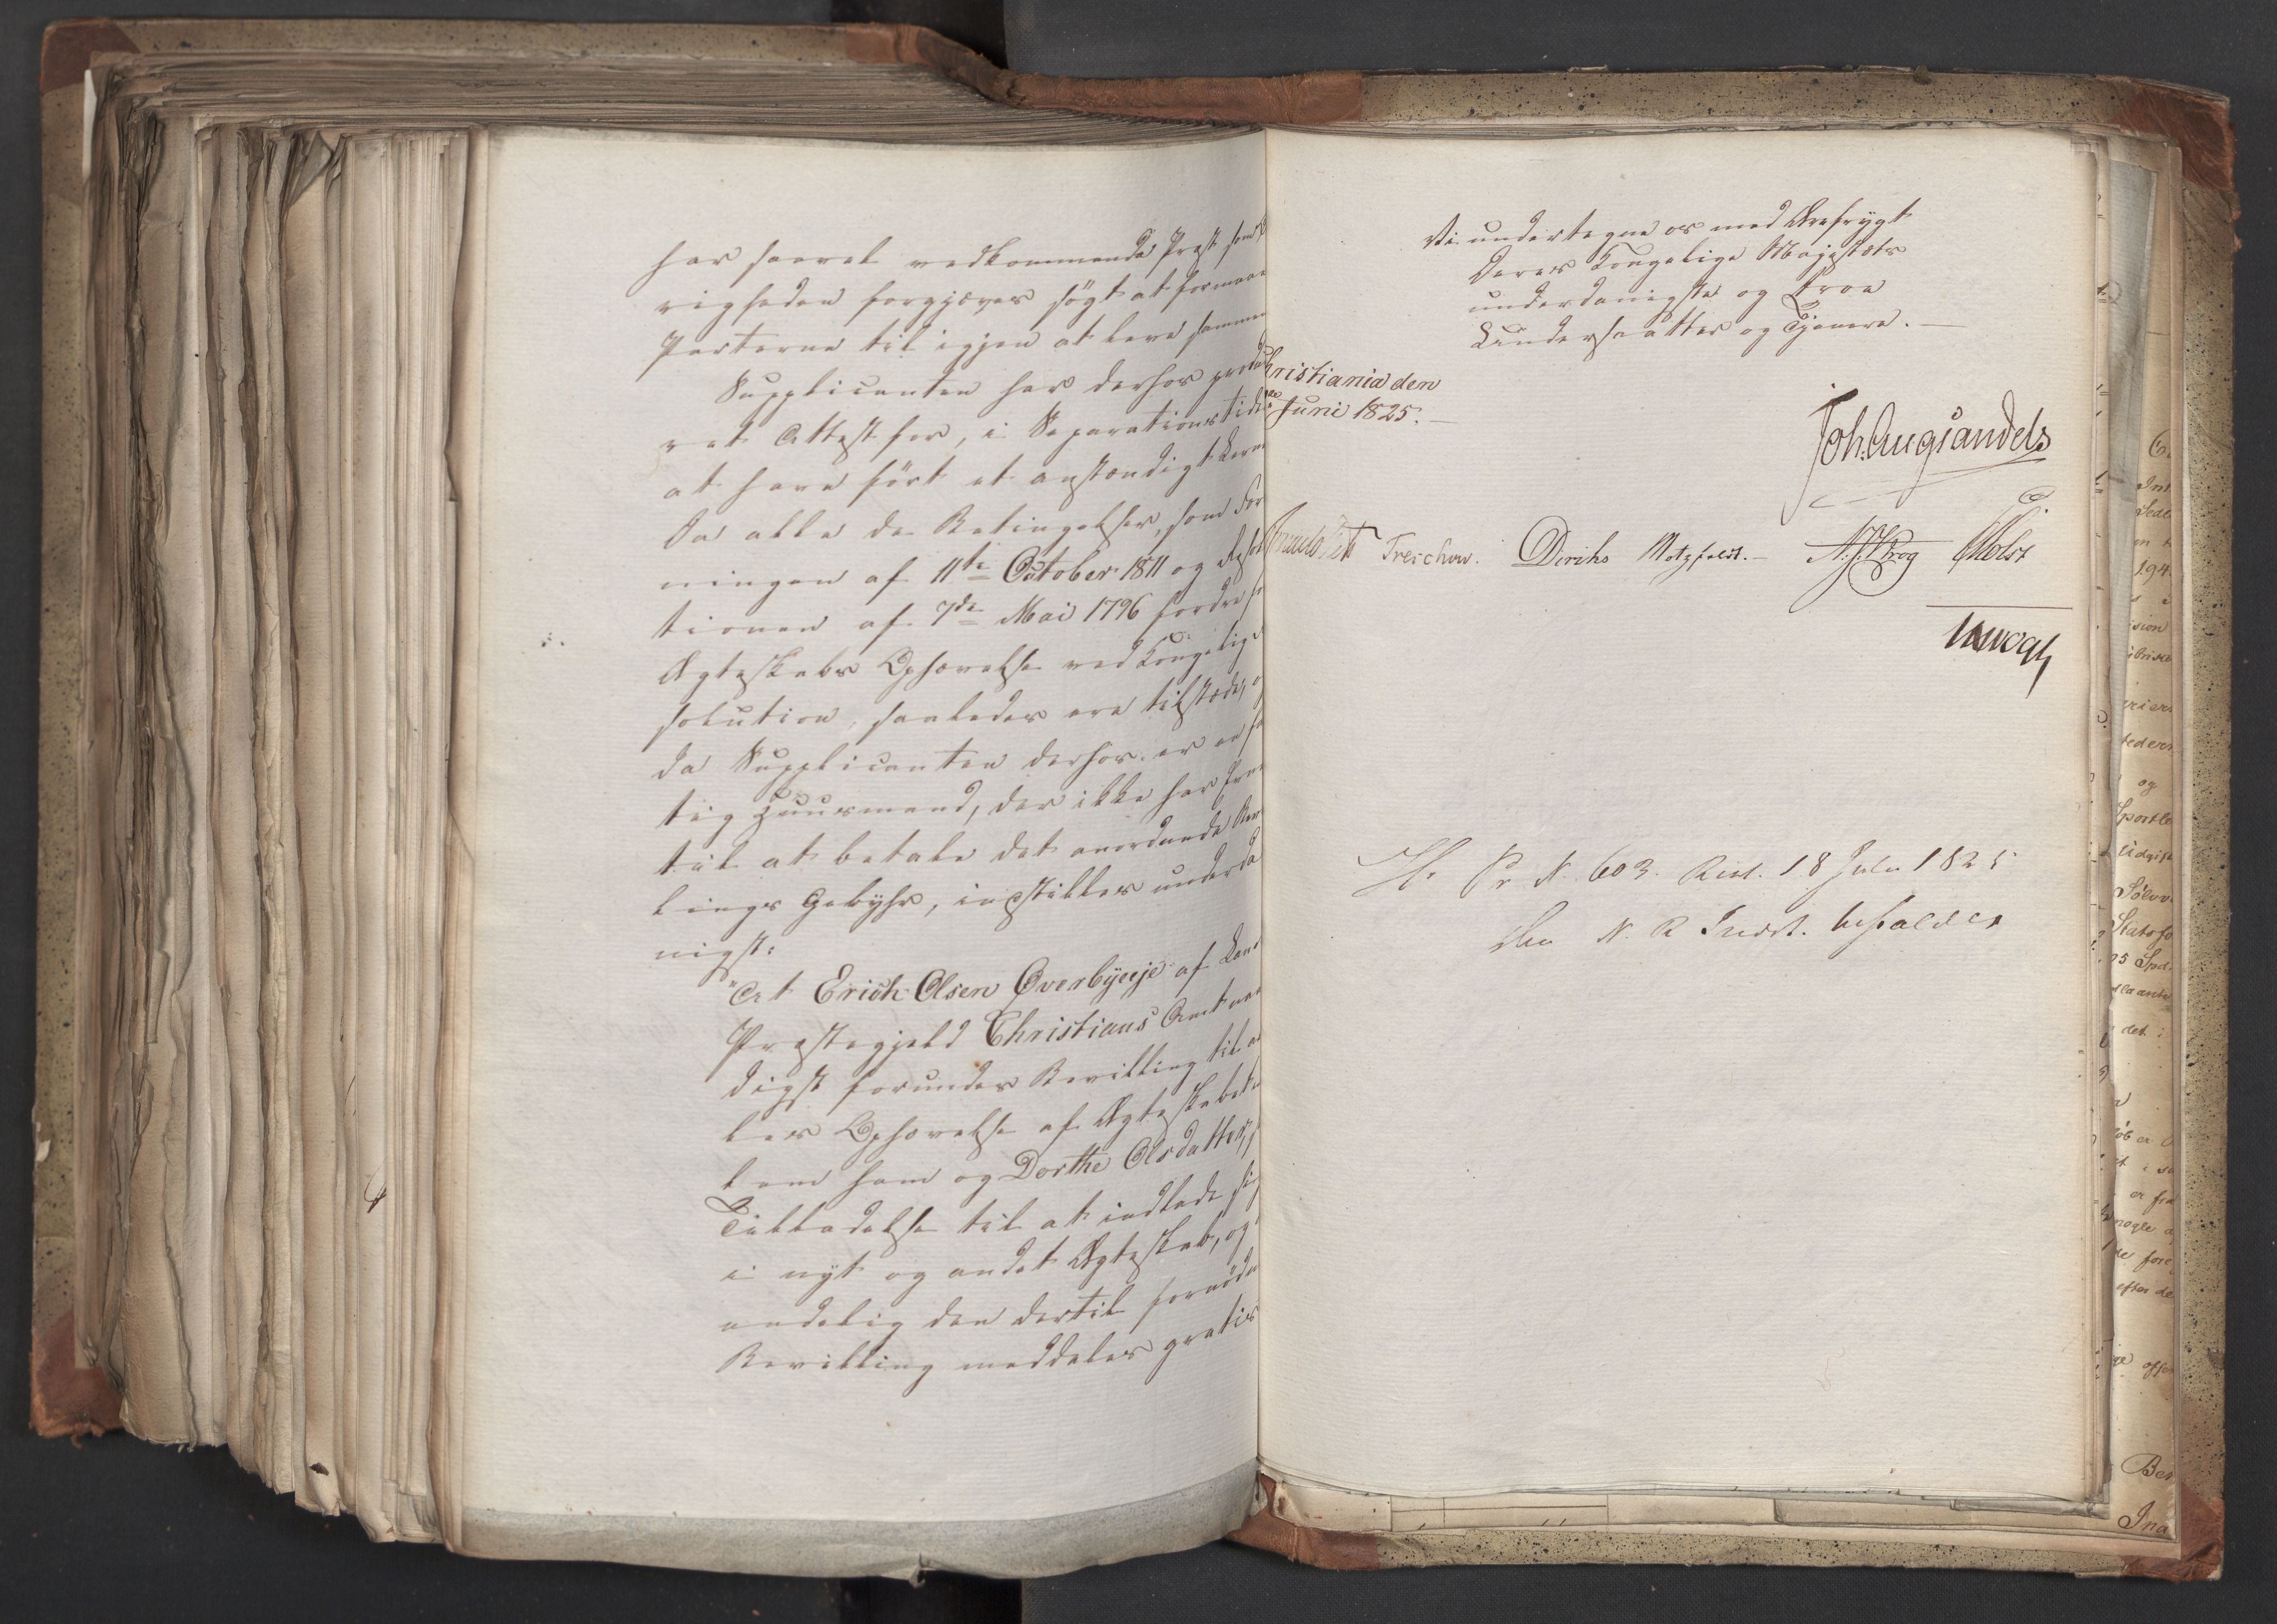 har saavel vedkommende Præst som
righeden forgjæves søgt at formaae
Parterne til igjen at leve sammen
Supplicanten har derhos produ
ret Attest for, i Separationstiden
at have ført et anstændigt Levn
Da alle de Betingelser, som For
ningen af 11te October 1811 og Resol
tionen af 7de Mai 1796 fordre for
Ægteskabs Ophævelse ved Kongelig
solution, saaledes ere tilstæde, og
da Supplicanten derhos er en fat
tig Huusmand, der ikke har Evne
til at betale det anordnede Be
lings Gebyhr, indstilles underda
nigst:
"At Erich Olsen Overbyeeje af Land
Præstegjeld Christians Amt naa
digst forundes Bevilling til a
les Ophævelse af Ægteskabet
lem ham og Dorthe Olsdatter,
Tilladelse til at indlade sig
i nyt og andet Ægteskab, og
endelig den dertil fornødne
Bevilling meddeles gratis
Vi undertegne os med Ærefrygt
Deres Kongelige Majestæts
underdanigste og troe
Undersaatter og Tjenere. —
hristiania den
Juni 1825. —
Joh. Aug. Sandels
Treschow. Diriks Motzfeldt. — Krog Holst
Hr Pr N. 603. Resl. 18 Julii 1825
Den N. R. Indst. bifaldes